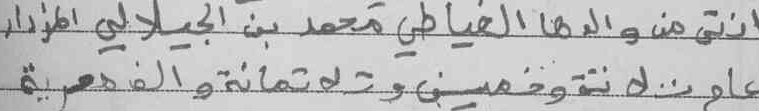 انتى من والدها الغياطي محمد بن الجيلالي المزداد
عام ثلاثة وخمسين وثلاثمائة والف هجرية